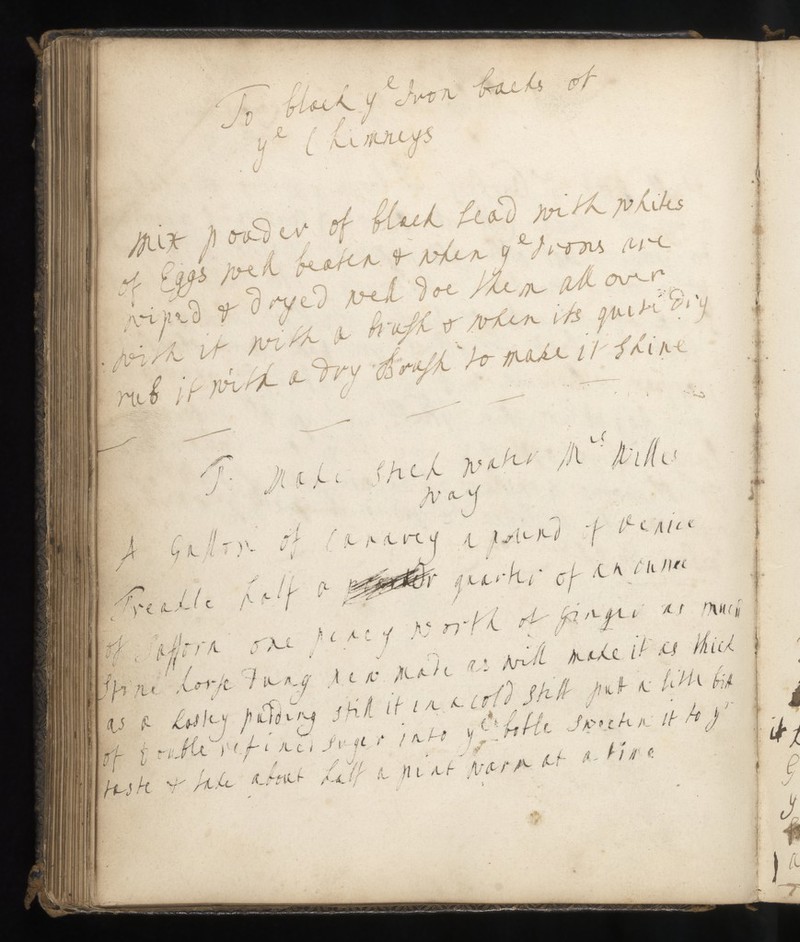 To black yͤ Iron backs of
yͤ Chimneys
mix pouder of black Lead with whites
of Eggs well beaten & when yͤ Irons are
wiped & dryed well doe them all over
with it with a brush & when its quite dry
rub it with a dry Brush to make it Shine
To Make Steel water Mʳˢ Willis
way
A Gallon of Canarey a pound of Venice
Treadle half a quarter of an ounce
of Safforn one peney worth of Ginger as much
Stone horse Dung new made as will make it as thick
as a hastey pudding still it in a cold Still put a little bit
of double refined Suger into yͤ botle Sweeten it to yʳ
taste & take about half a pint warm at a time
it